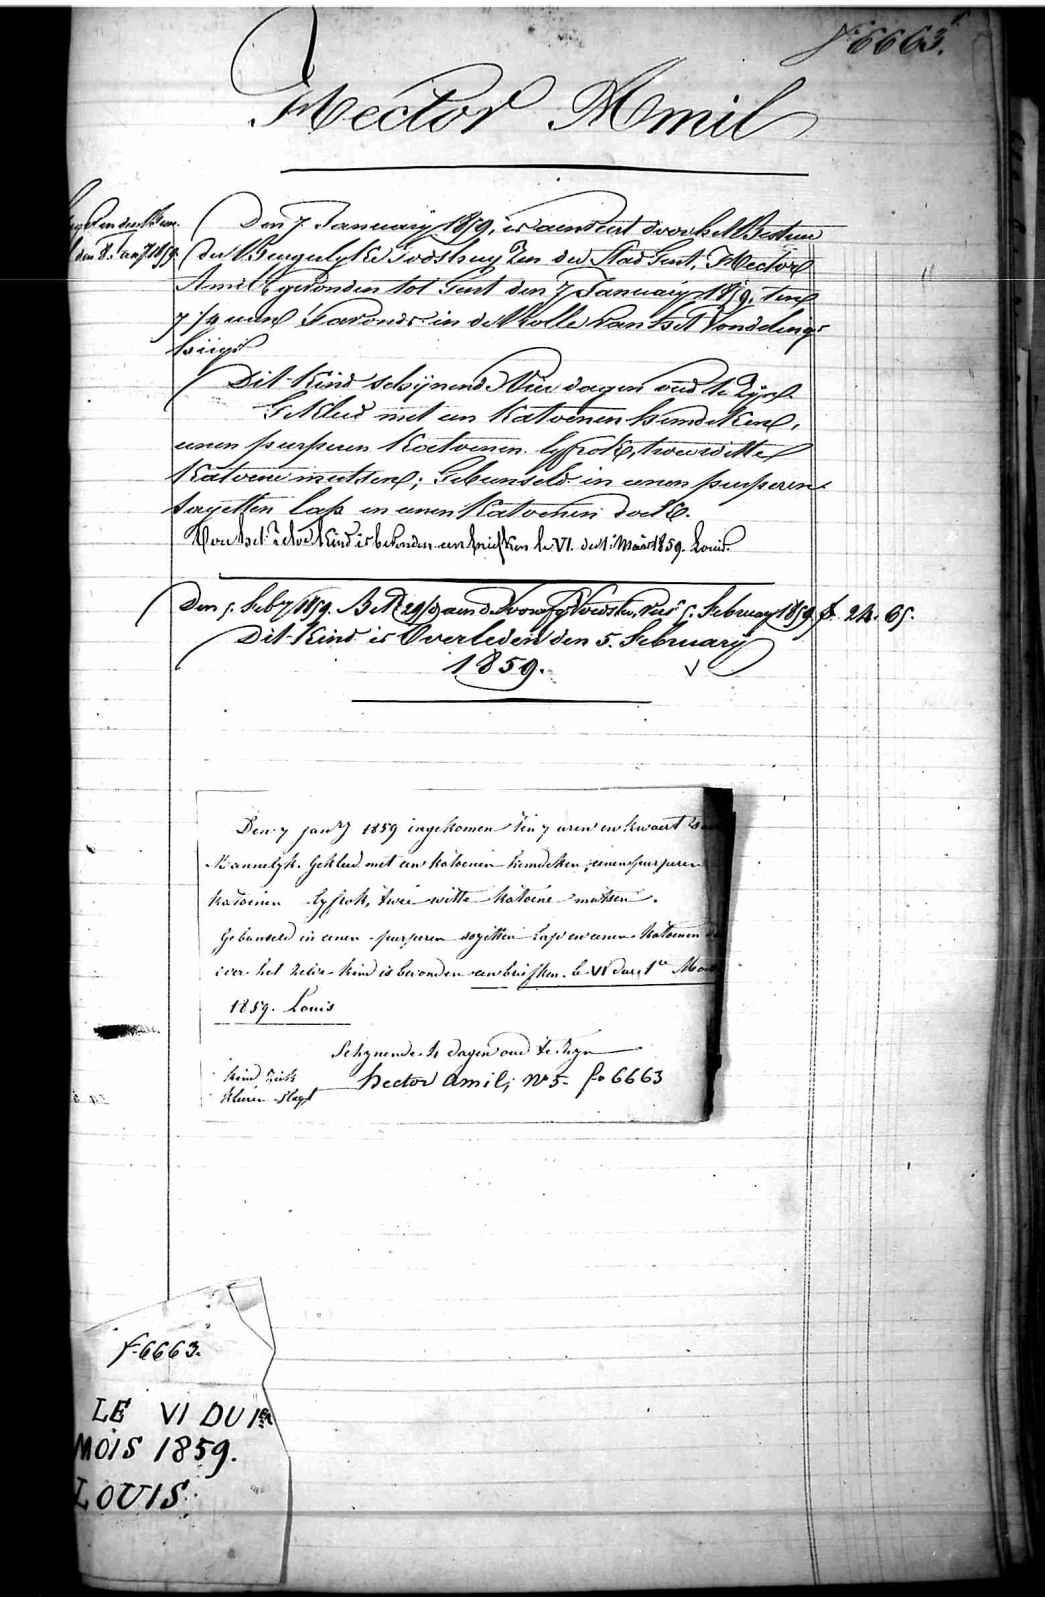 fo 6663.
Hector Amil
den 8. Jany 1859.
Den 7. January 1859, is aenveert door het Bestuer
der Burgerlyke Godshuyzen der Stad Gent, Hector
Amil gevonden tot Gent den 7 January 1859, ten
7 1/4 uren s'avonds in de Rolle van het Vondelings
huys
Dit kind schijnende Vier dagen oud te zijn
Gekleed met een Katoenen hemdeken,
eenen purpuren Katoenen lyfrok, twee witte
Katoene mutsen; Gebunseld in eenen purperen
sayetten lap en eenen Katoenen doek.
Over het zelve Kind is bevonden een briefken le VI. du 1r Mois 1859. Louis.
Den 5. Feby 1859. Bet. 29/ aen de Voedster, tot 5. February 1859 f. 24. 65.
Dit Kind is Overleden den 5. February
1859.
Den 7 jany 1859 ingekomen ten 7 uren en kwaert
Mannelyk. Gekleed met een katoenen hemdeken, eenen purperen
katoenen lyfrok, twee witte katoene mutsen.
Gebunseld in eenen purperen sayetten lap en eenen katoenen
over het zelve kind is bevonden een briefken. le VI du 1er Mois
1859. Louis
Schynende 4 dagen oud te zyn
kind ziek
hector amil, No 5 - fo 6663
f-6663.
LE VI DU 1er
MOIS 1859.
LOUIS.